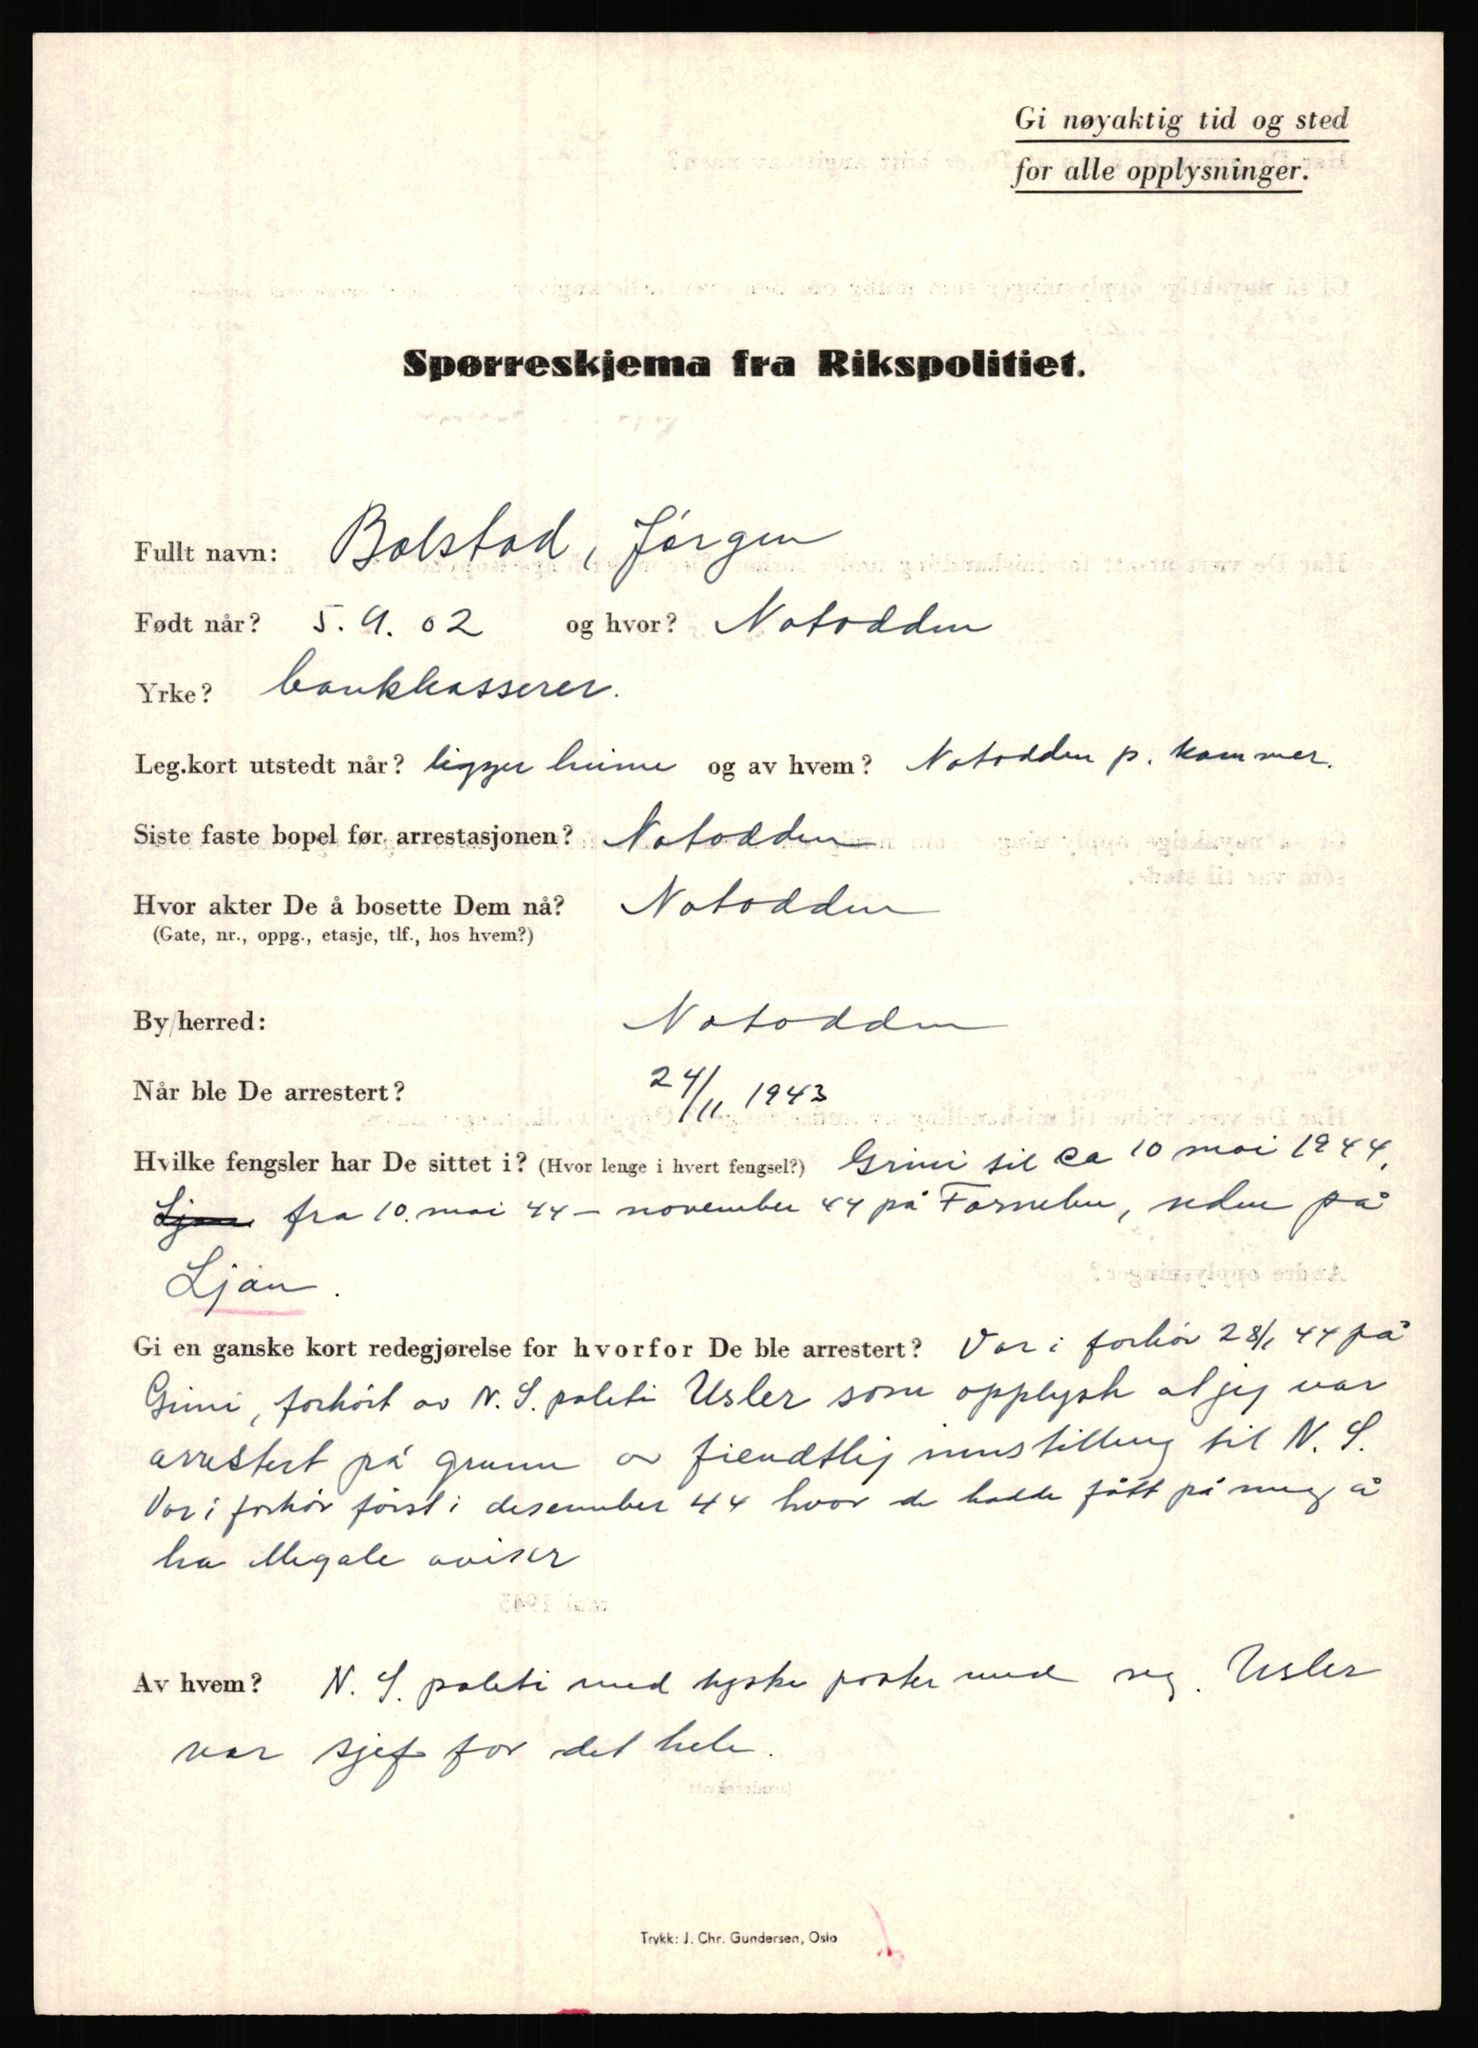 Gi nøyaktig tid og sted
for alle opplysninger.
Spørreskjema fra Rikspolitiet.
Fullt navn: Bolstad, Jørgen
Født når? 5.9.02 og hvor? Notodden
Yrke? bankkasserer.
Leg.kort utstedt når? ligger hjeme og av hvem? Notodden p. kammer.
Siste faste bopel før arrestasjonen? Notodden
Hvor akter De å bosette Dem nå? Notodden
(Gate, nr., oppg., etasje, tlf., hos hvem?)
By/herred: Notodden
Når ble De arrestert? 24/11 1943
Hvilke fengsler har De sittet i? (Hvor lenge i hvert fengsel?) Grini til ca 10 mai 1944,
Ljan fra 10. mai 44 – november 44 på Fornebu, siden på
Ljan.
Gi en ganske kort redegjørelse for hvorfor De ble arrestert? Var i forhör 28/1 44 på
Grini, forhört av N.S. politi Usler som opplyste at jeg var
arrestert på grunn av fiendtlig innstilling til N.S.
Var i forhör först i desember 44 hvor de hadde fått på meg å
ha illegale aviser
Av hvem? N.S. politi med tyske poster med seg. Usler
var sjef for det hele.
Trykk: J. Chr. Gundersen, Oslo